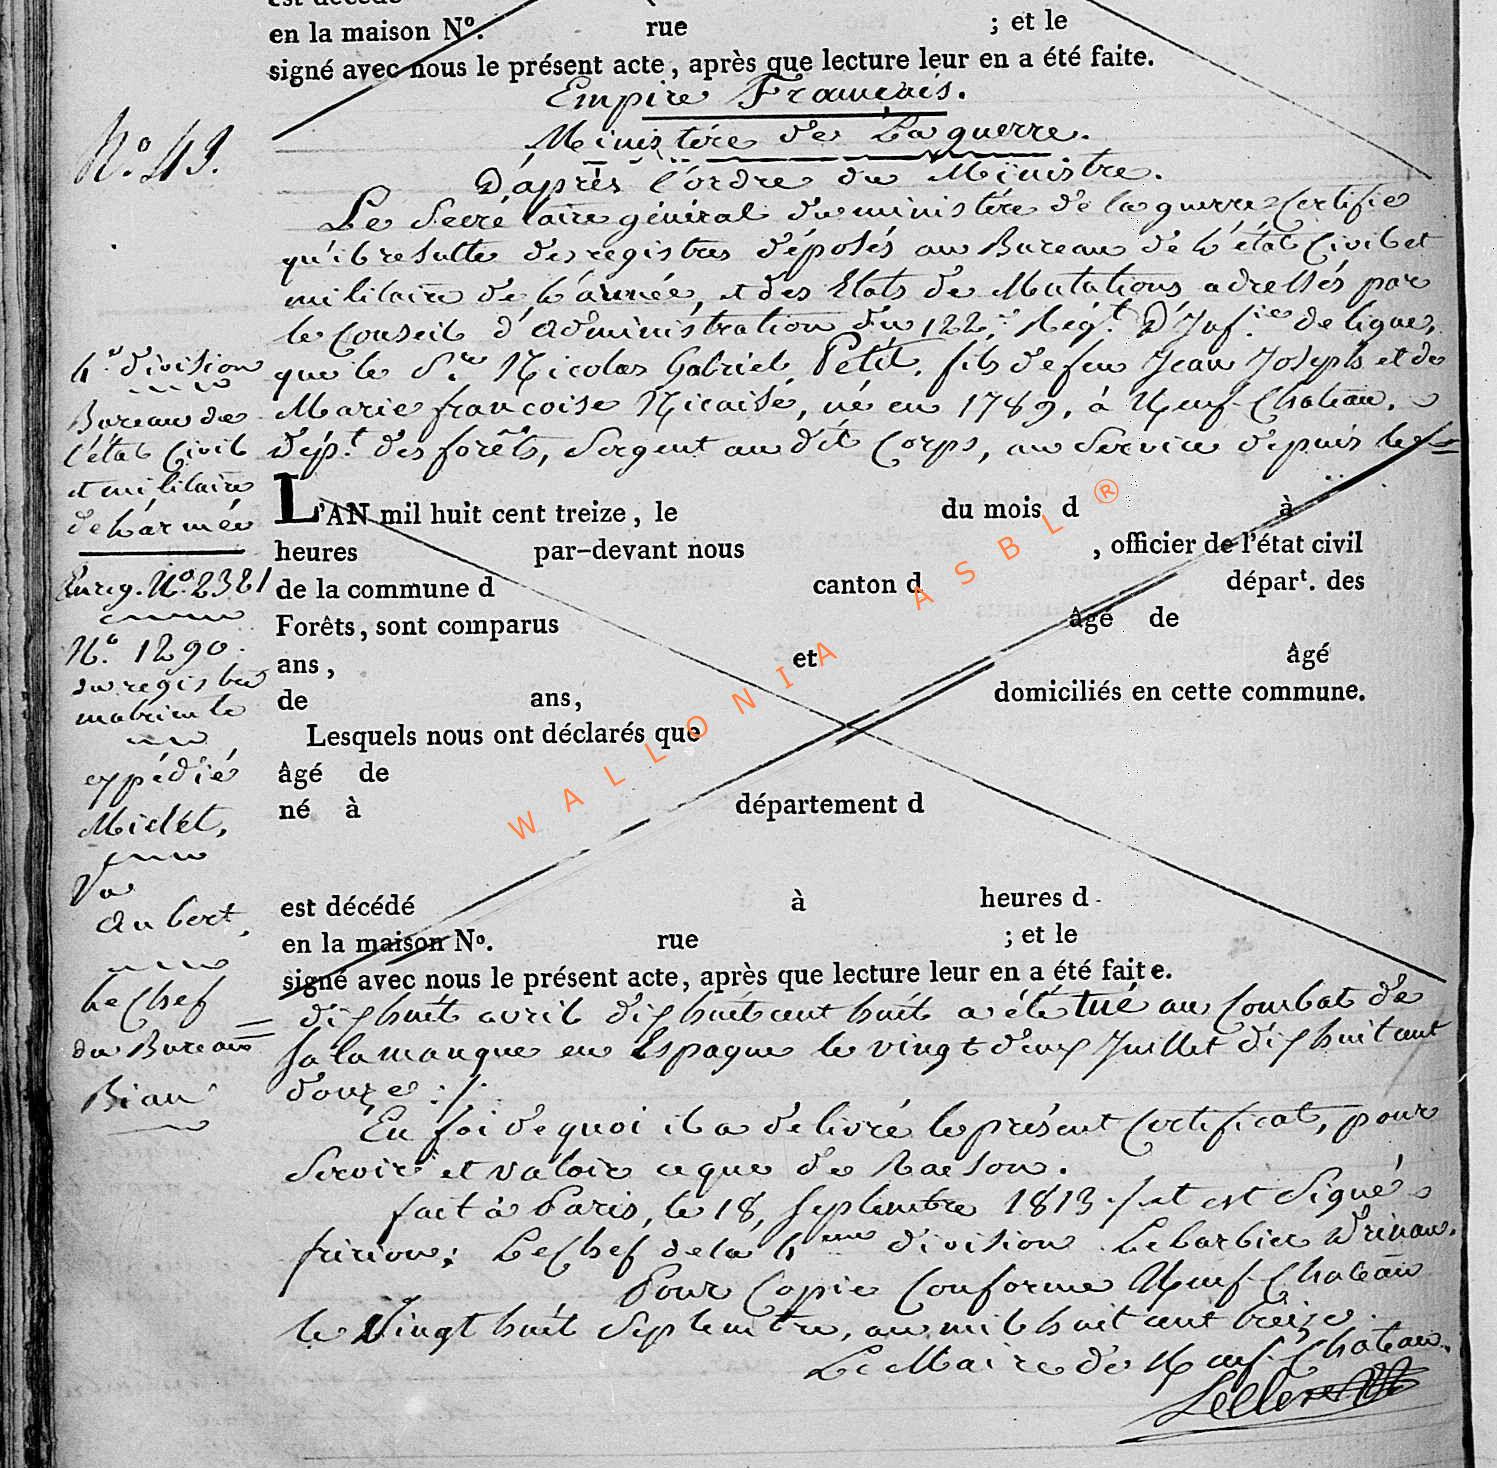 est décédé
en la maison N.º rue ; et le
signé avec nous le présent acte, après que lecture leur en a été faite.
Empire Français.
Ministère de La guerre.
D'après l'ordre du Ministre.
Nº 49.
Le Secrétaire général du ministère de la guerre Certifie
qu'il resulte des registres déposés au Bureau de l'état Civil et
militaire de l'armée, et des Etats de Mutations adressés par
le Conseil d'administration du 122.e Rég.t D'Inf.ie de ligne,
que le S.r Nicolas Gabriel Petit, fils de feu Jean Joseph et de
Marie françoise Nicaise, né en 1789, à Neuf-Chateau,
dép.t des forêts, Sergent au dit Corps, au Service depuis le
4.e division
Bureau de
l'état Civil
et militaire
de l'armée
Enreg. Nº 2381
Nº 1290.
du registre
matricule
expédié
Midet,
Vu
Aubert,
Le Chef
du Bureau
Biau
L'AN mil huit cent treize, le du mois d à
heures par-devant nous , officier de l'état civil
de la commune d canton d départ. des
Forêts, sont comparus âgé de
ans, et âgé
de ans, domiciliés en cette commune.
Lesquels nous ont déclarés que
âgé de
né à département d
est décédé à heures d
en la maison Nº. rue ; et le
signé avec nous le présent acte, après que lecture leur en a été faite.
WALLONIA ASBL ®
= dix huit avril dix huit cent huit a été tué au Combat de
Salamanque en Espagne le vingt deux Juillet dix huit cent
douze ./.
En foi de quoi il a délivré le présent Certificat, pour
Servir et valoir ce que de Raeson.
fait à Paris, le 18, Septembre 1813 ./. et est Signé
fririon; Le Chef de la 4eme division Le barbier Drinau.
Pour Copie Conforme Neuf-Chateau
le Vingt huit Septembre, an mil huit cent treize.
Le Maire de Neuf-Chateau.